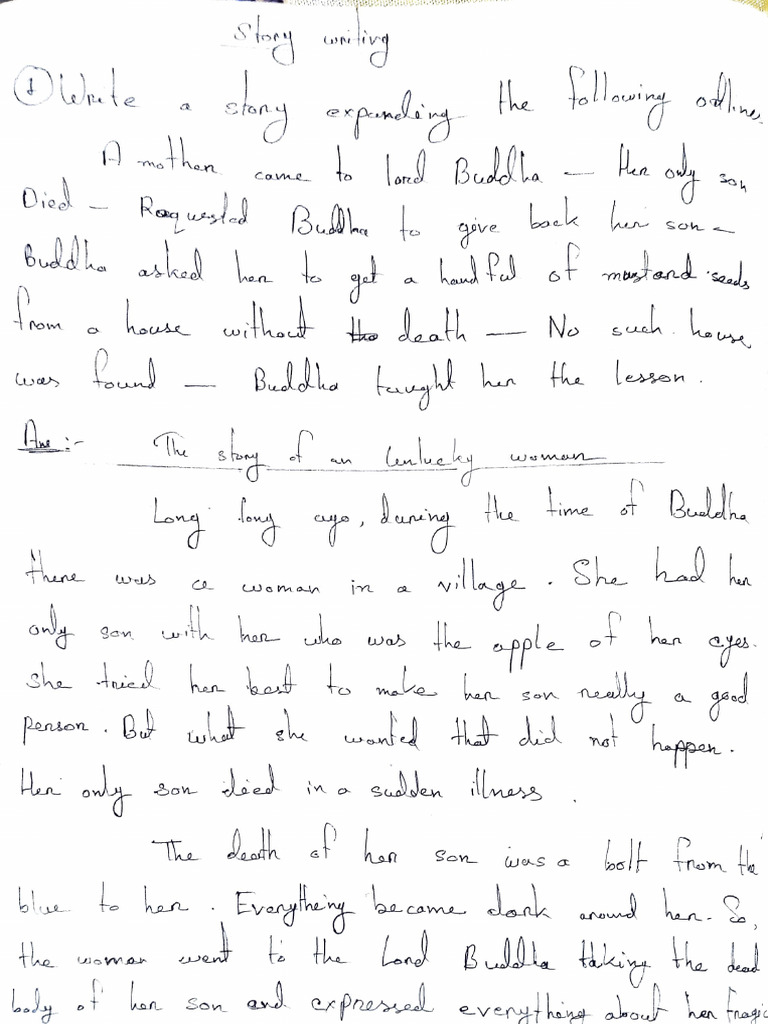 Story writing
① Write a story expanding the following outlines.
A mother came to lord Buddha — Her only son
Died — Requested Buddha to give back her son -
Buddha asked her to get a handful of mustard seeds
from a house without death — No such house
was found — Buddha taught her the lesson.
Ans :- The story of an Unlucky woman
Long long ago, during the time of Buddha
there was a woman in a village. She had her
only son with her who was the apple of her eyes.
she tried her best to make her son really a good
person. But what she wanted that did not happen.
Her only son died in a sudden illness.
The death of her son was a bolt from the
blue to her. Everything became dark around her. So,
the woman went to the Lord Buddha taking the dead
body of her son and expressed everything about her